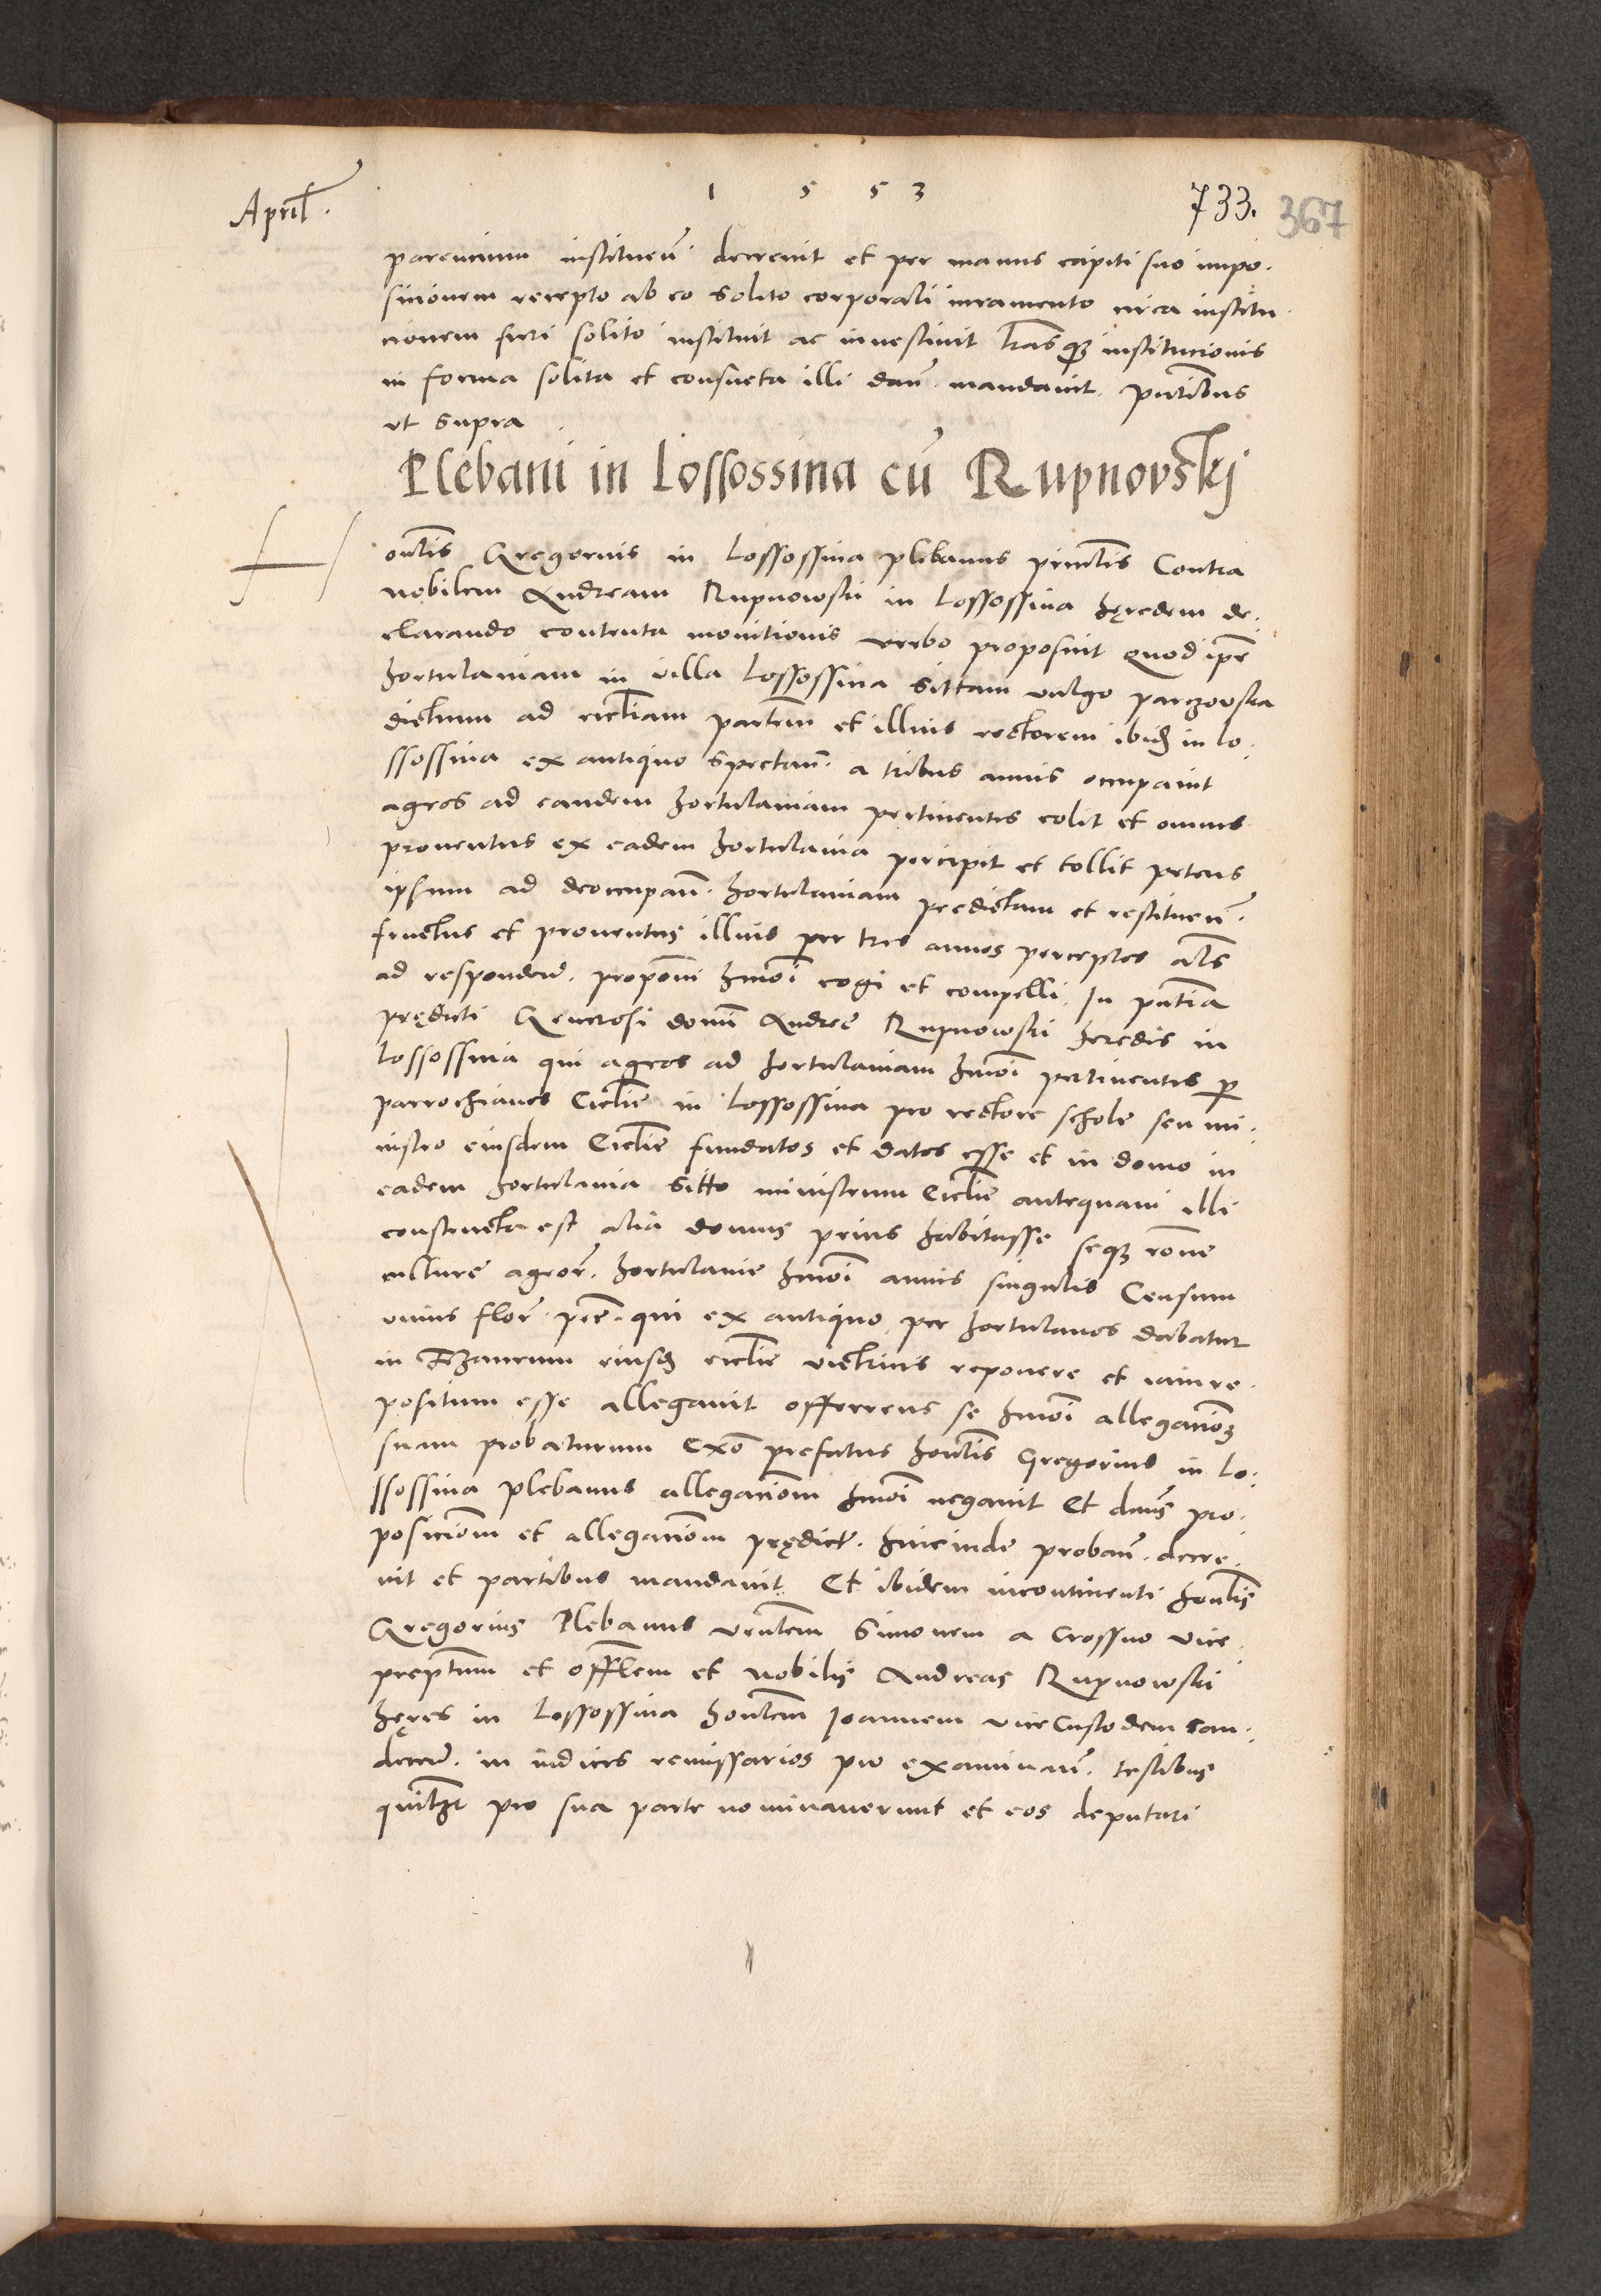 April.
1 5 5 3
733. 367
parencium instituen̄ decrevit et per manus capiti suo impo-
sicionem recepto ab eo solito corporali iuramento circa institu-
cionem fieri solito instituit ac investivit l̄rasq3 institucionis
in forma solita et consueta illi dan̄ mandavit. P̄ntibus
ut supra
Plebani in Lossossina cū Rupnovskj
Honlis Gregorius in Lossossina plebanus princlis Contra
nobilem Andream Rupnowski in Lossossina hęredem de-
clarando contenta monitionis verbo proposuit Quod ip̄e
hortulaniam in villa Lossossina sittam vulgo parczowska
dictum ad eccl̄iam paten̄ et illius rectorem ibid̄ in Lo-
ssossina ex antiquo spectan̄. a tribus annis occupavit
agros ad eandem hortulaniam pertinentes colit et omnes
proventus ex eadem hortulania percipit et tollit petens
ipsum ad deoccupan̄. hortulaniam predictam et restituen̄.
fructus et proventus illius per tres annos perceptos al̄s
ad responden̄. propōni hmōi cogi et compelli. In p̄ntia
prędicti Generosi domi Andreę Rupnowski heredis in
Lossossina qui agros ad hortulaniam hmōi pertinentes p̄
parrochianos Ecclīe in Lossossina pro rectore scholę seu mi-
nistro eiusdem Ecclīe fundatos et datos esse et in domo in
eadem hortulania sitto ministrum Ecclīe antequam illi
constructa est alia domus prius habitasse seq3 rōne
culturę agror̄. hortulanię hmōi annis singulis Censum
unius flor̄. pec̄. qui ex antiquo per hortulanos dabatur
in Thezaurum eiusd̄ ecclīe vietricus reponere et iam re-
positum esse allegavit offerens se hmōi allegacionē
suam probaturum Exō prefatus honlis Gregorius in Lo-
ssossina plebanus allegaciōm hmōi negavit Et dn̄s pro-
posiciōm et allegaciōm prędict. hincinde proban̄. decre-
vit et partibus mandavit. Et ibidem incontinenti honlis
Gregorius Plebanus ven̄lem Simonem a Crossno vice-
prep̄tum et offl̄em et nobilis Andreas Rupnowski
hęres in Lossossina honlem Joannem vicecustodem San-
decen̄. in iudices remissarios pro examinan̄. testibus
quil̄t pro sua parte nominaverunt et eos deputari